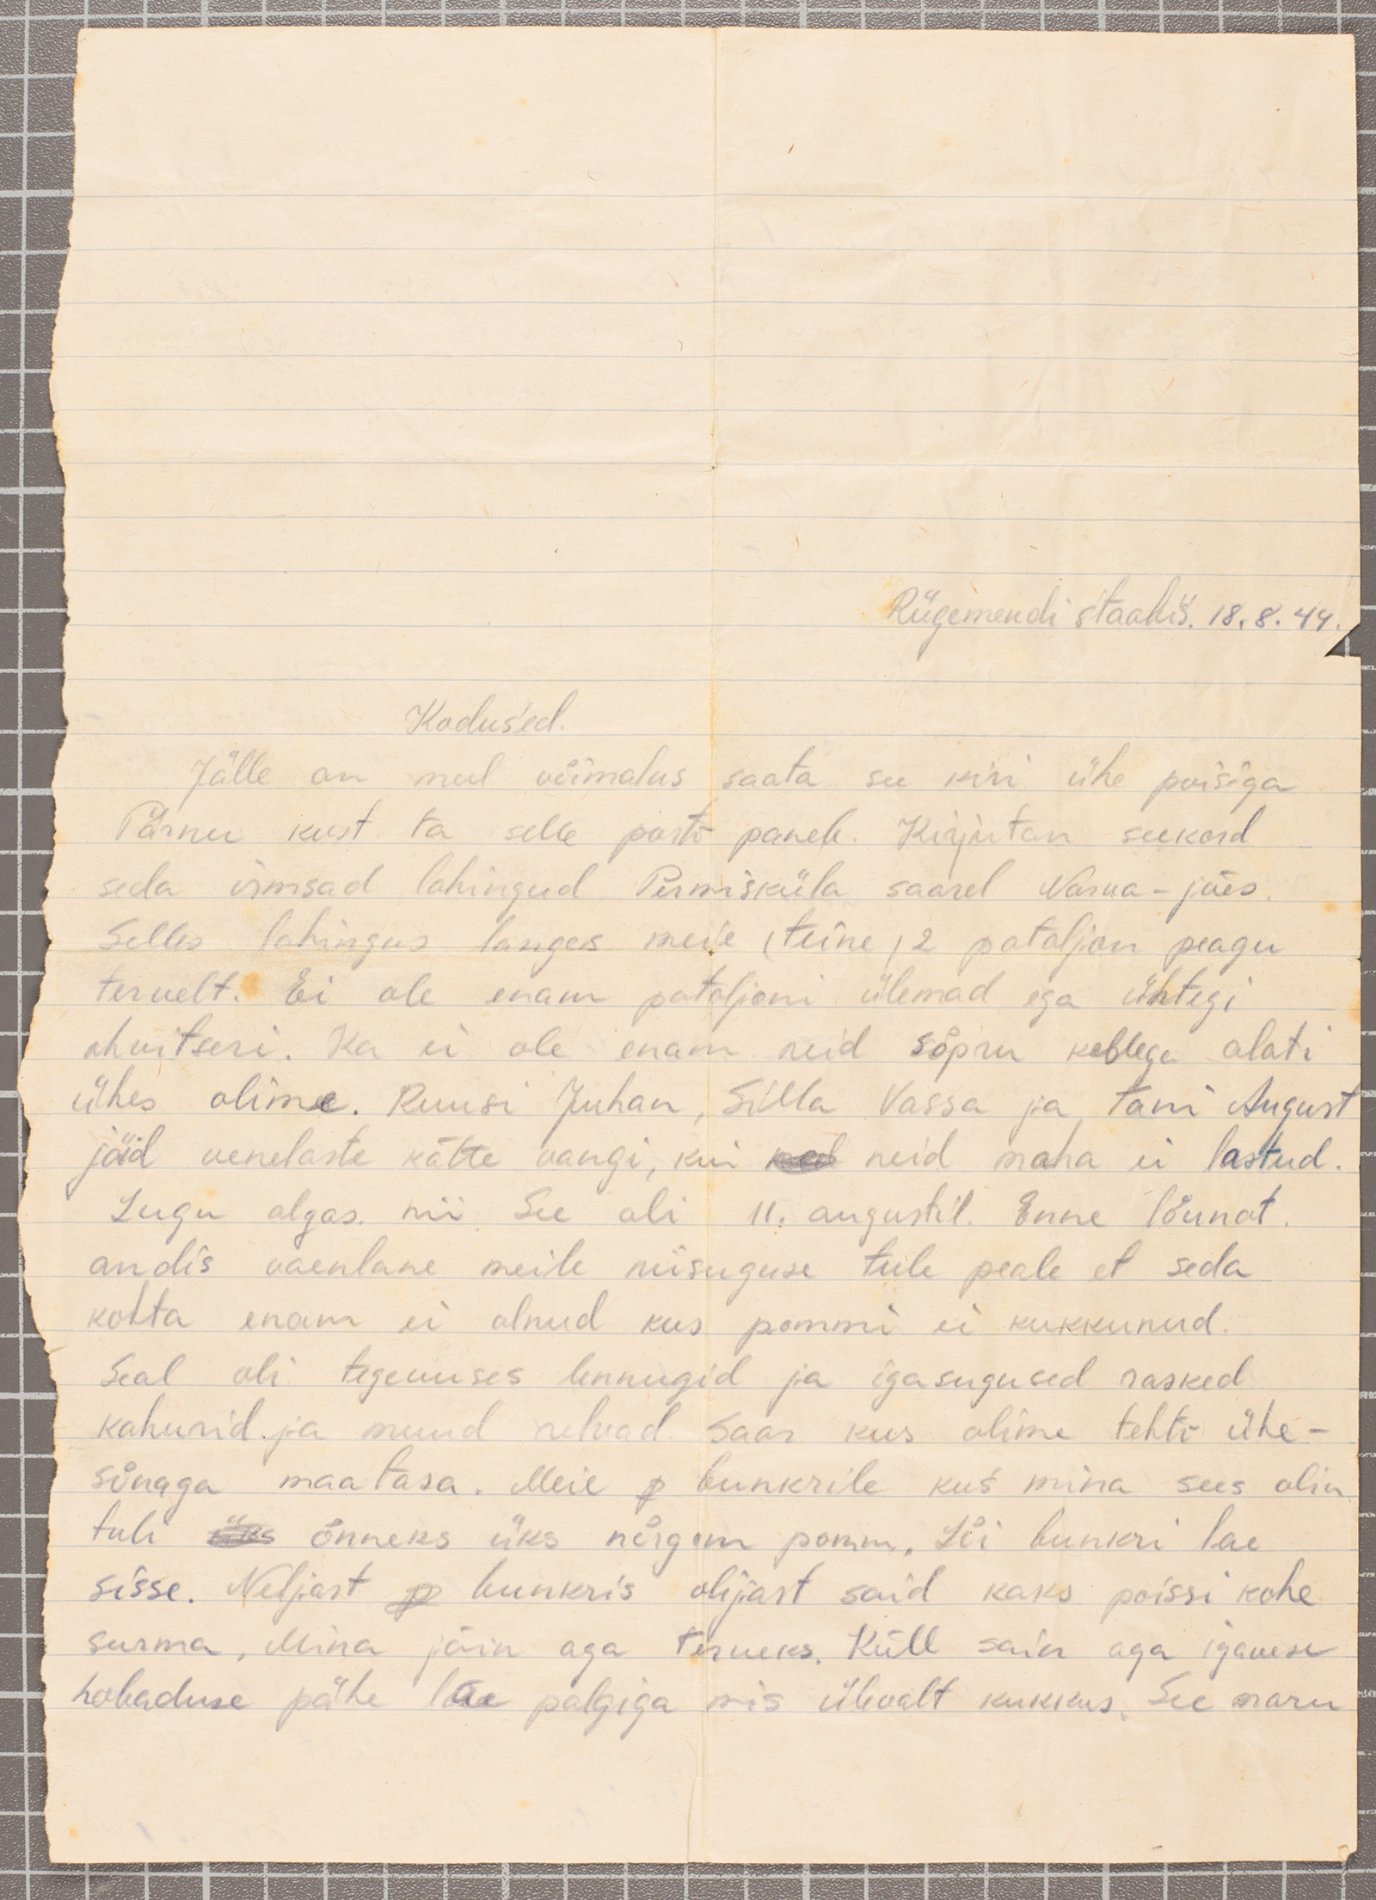 Rügemendi staabis. 18.8.44.
Kodused.
Jälle on mul võimalus saata see kiri ühe poisiga
Pärnu kust ta selle posti paneb. Kirjutan seekord
seda irmsad lahingud Permisküla saarel Narva-jões.
Selles lahingus langes meie (teine) 2 pataljon peagu
tervelt. Ei ole enam pataljoni ülemad ega ühtegi
ohvitseri. Ka ei ole enam neid sõpru kellega alati
ühes olime. Ruusi Juhan, Silla Vassa ja Tami August
jäid venelaste kätte vangi, kui neid maha ei lastud.
Lugu algas nii See oli 11. augustil. Enne lõunat.
andis vaenlane meile niisuguse tule peale et seda
kohta enam ei olnud kus pommi ei kukkunud.
Seal oli tegevuses lennugid ja igasugused rasked
kahurid ja muud relvad. Saar kus olime tehti ühe-
sõnaga maatasa. Meie bunkrile kus mina sees olin
tuli õnneks üks nõrgem pomm. Lõi bunkri lae
sisse. Neljast bunkris olijast said kaks poissi kohe
surma, Mina jäin aga terveks. Küll sain aga igavese
hobaduse pähe lae palgiga mis ülevalt kukkus. See maru